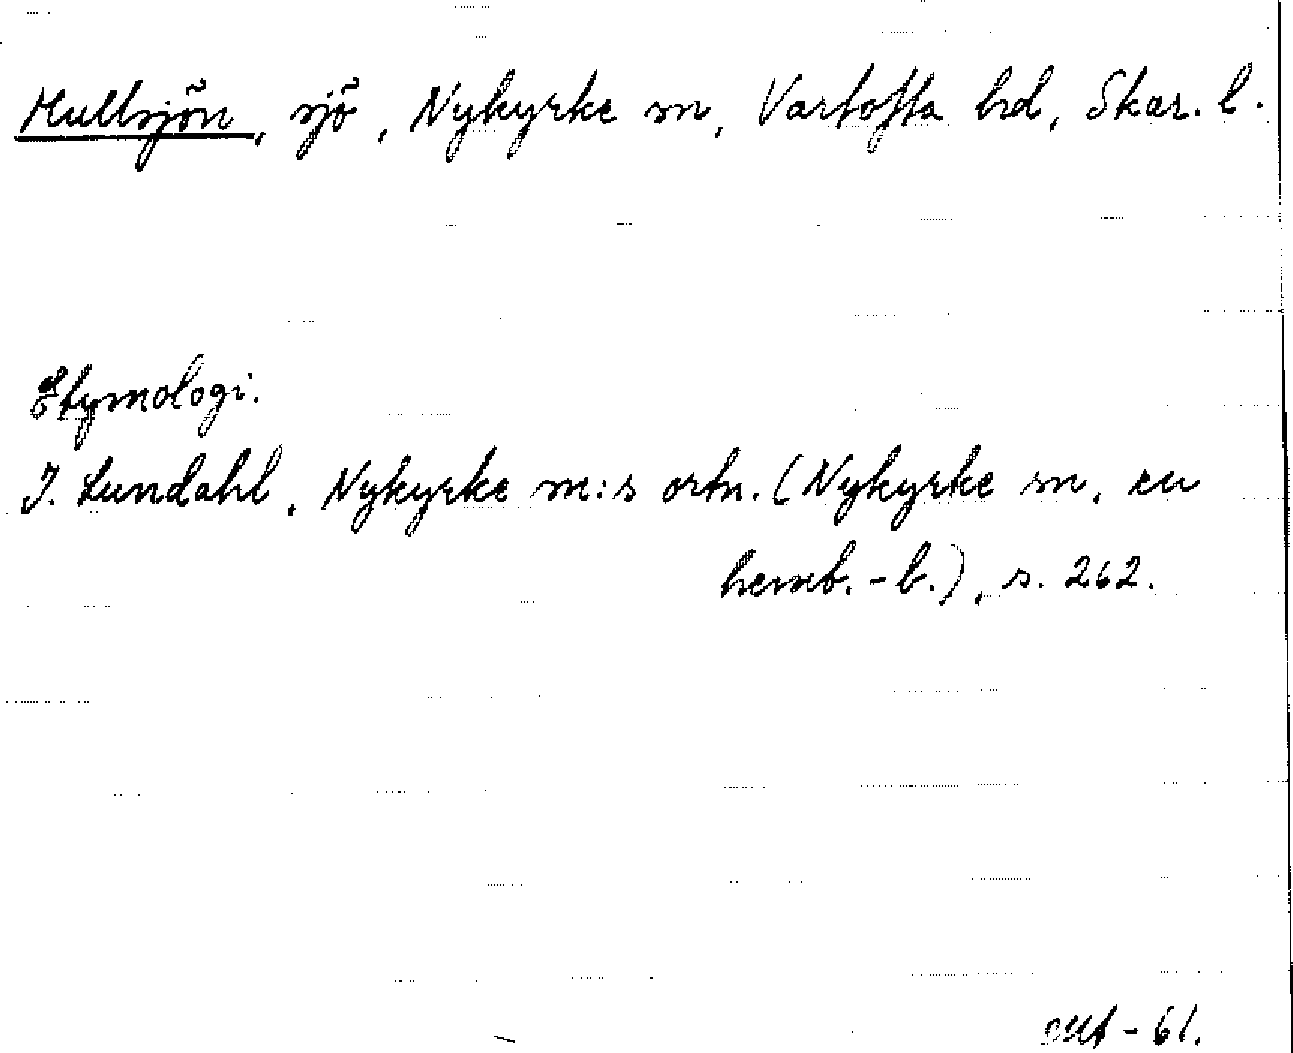 Hullsjön, sjö, Nykyrke sn, Vartofta hd, Skar. l.
Etymologi.
I. Lundahl, Nykyrke sn:s ortn. (Nykyrke sn, en
hemb.-b.), s. 262.
-61.